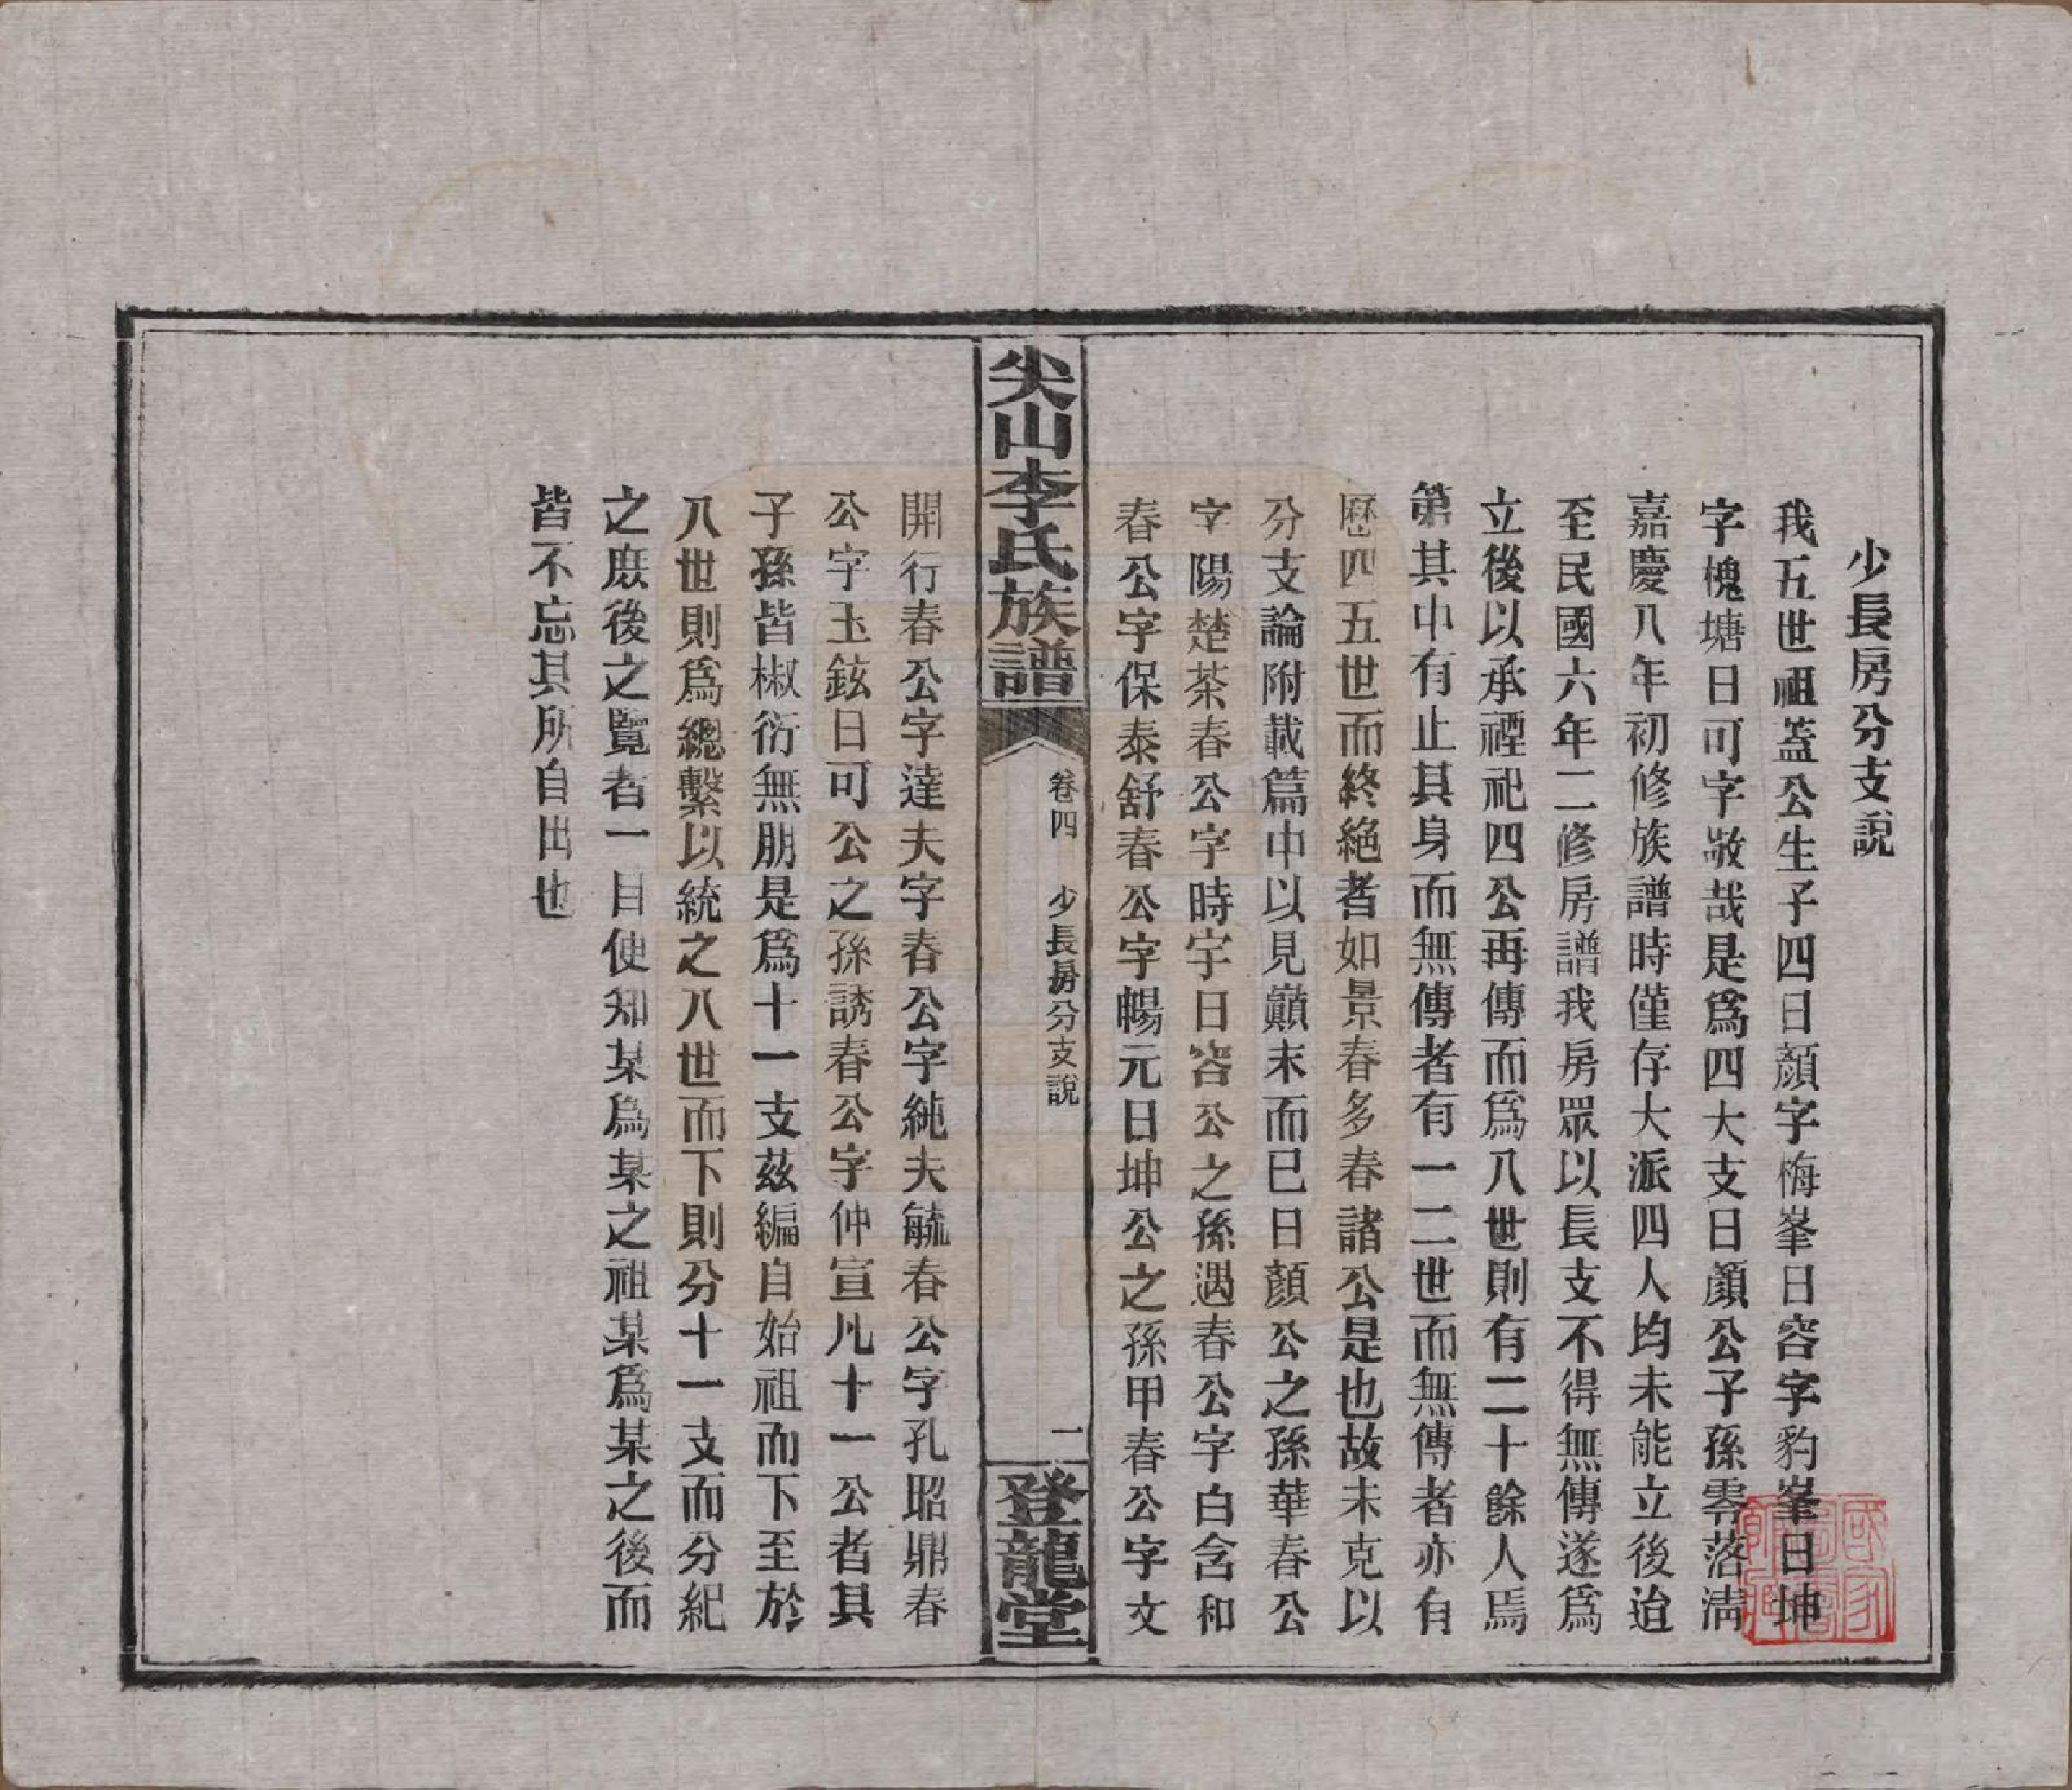 少長房分支說
我五世祖蓋公生子四曰顏字梅峯曰容字豹峯曰坤
字槐塘曰可字敬哉是爲四大支曰顏公子孫零落清
嘉慶八年初修族譜時僅存大派四人均未能立後迨
至民國六年二修房譜我房眾以長支不得無傳遂爲
立後以承禋祀四公再傳而爲八世則有二十餘人焉
第其中有止其身而無傳者有一二世而無傳者亦有
歷四五世而終絕者如景春多春諸公是也故未克以
分支論附載篇中以見巔末而已曰顏公之孫華春公
字陽楚茶春公字時宇曰容公之孫遇春公字白含和
春公字保泰舒春公字暢元曰坤公之孫甲春公字文
尖山李氏族譜
卷四 少長房分支說
二
登龍堂
開行春公字達夫字春公字純夫毓春公字孔昭鼎春
公字玉鉉曰可公之孫誘春公字仲宣凡十一公者其
子孫皆椒衍無朋是爲十一支茲編自始祖而下至於
八世則爲總繫以統之八世而下則分十一支而分紀
之庶後之覽者一目使知某爲某之祖某爲某之後而
皆不忘其所自出也